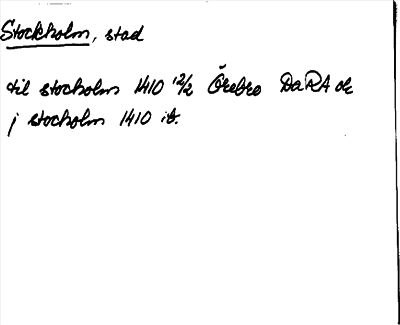 Stockholm, stad
til stocholm 1410 12/2 Örebro DaRA dk
j stocholm 1410 ib.